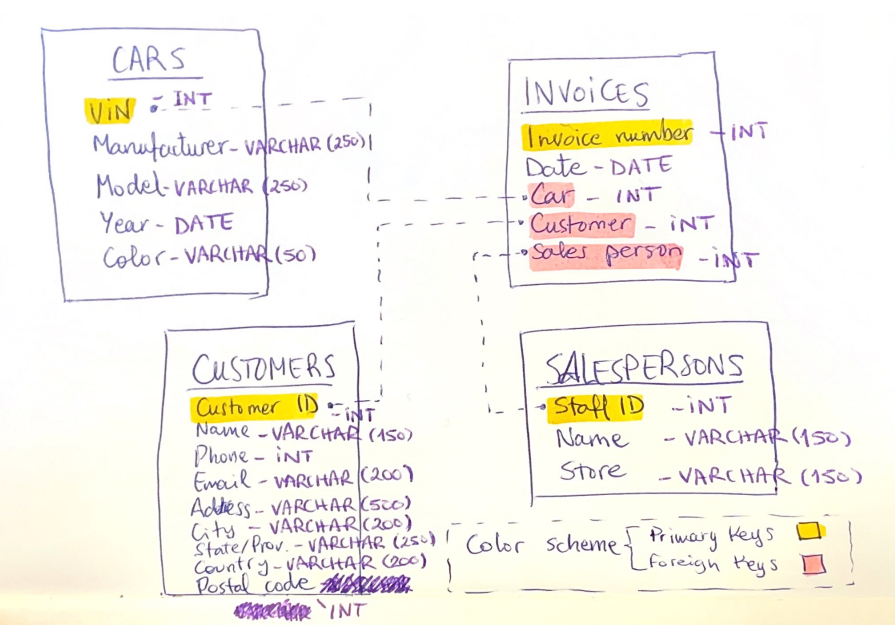 CARS
ViN - INT
Manufacturer - VARCHAR (250)
Model - VARCHAR (250)
Year - DATE
Color - VARCHAR (50)
INVOiCES
Invoice number - INT
Date - DATE
Car - INT
Customer - iNT
Sales person - iNT
CUSTOMERS
Customer ID - iNT
Name - VARCHAR (150)
Phone - iNT
Email - VARCHAR (200)
Address - VARCHAR (500)
City - VARCHAR (200)
State/Prov. - VARCHAR (250)
Country - VARCHAR (200)
Postal code
INT
SALESPERSONS
Staff ID - iNT
Name - VARCHAR (150)
Store - VARCHAR (150)
Color scheme
Primary Keys
Foreign Keys